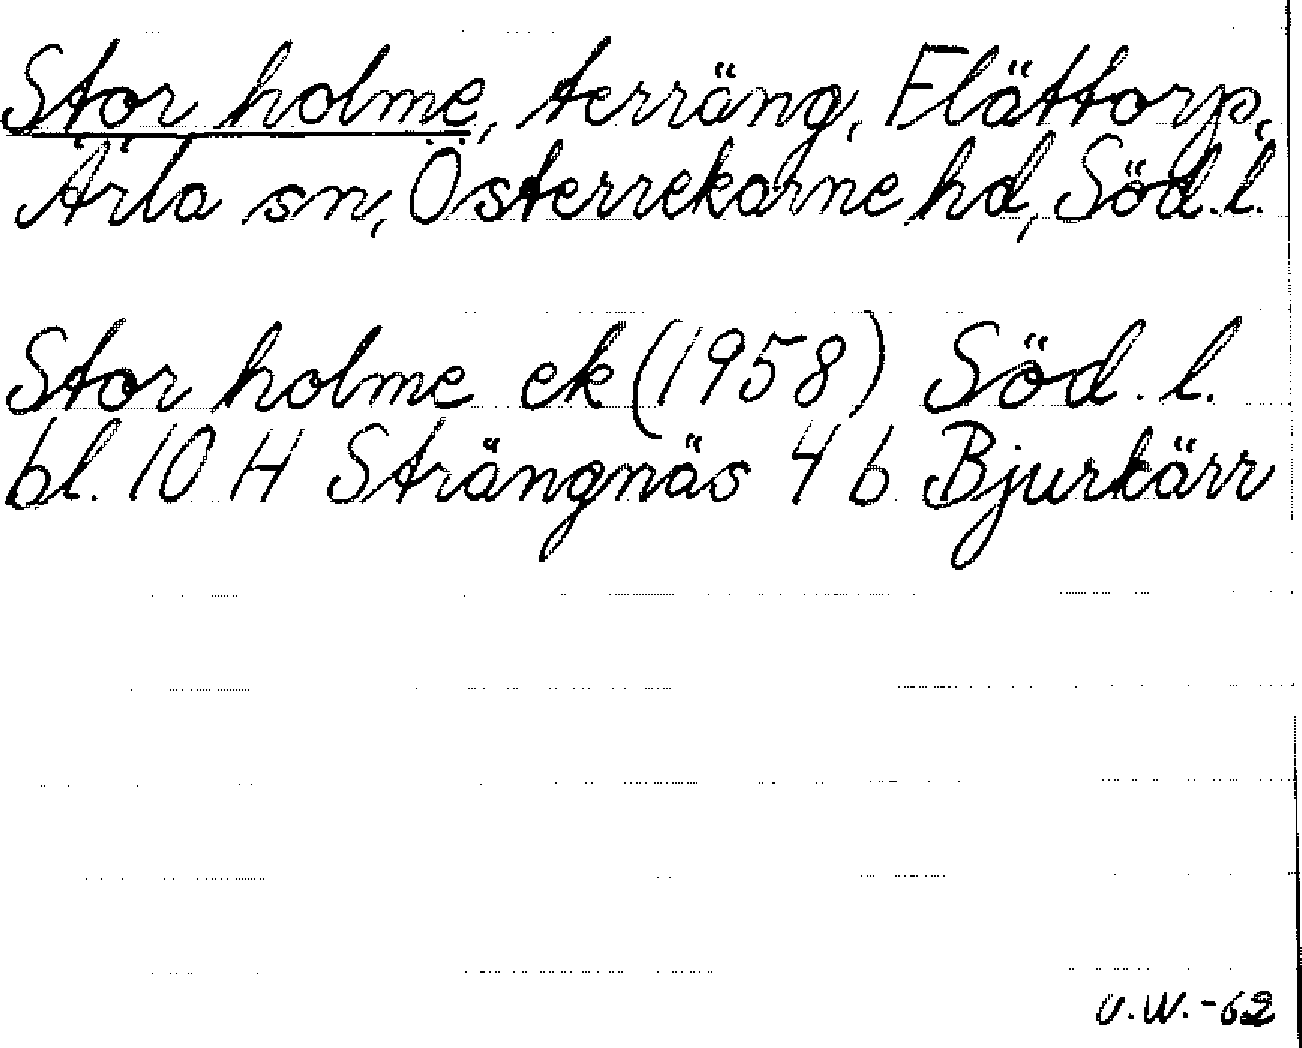 Storholme, terräng, Flättorp,
Ärla sn, Österrekarne hd, Söd. l.
Storholme ek (1958) Söd. l.
bl. 10 H Strängnäs 4 b Bjurkärr
U.W.-62